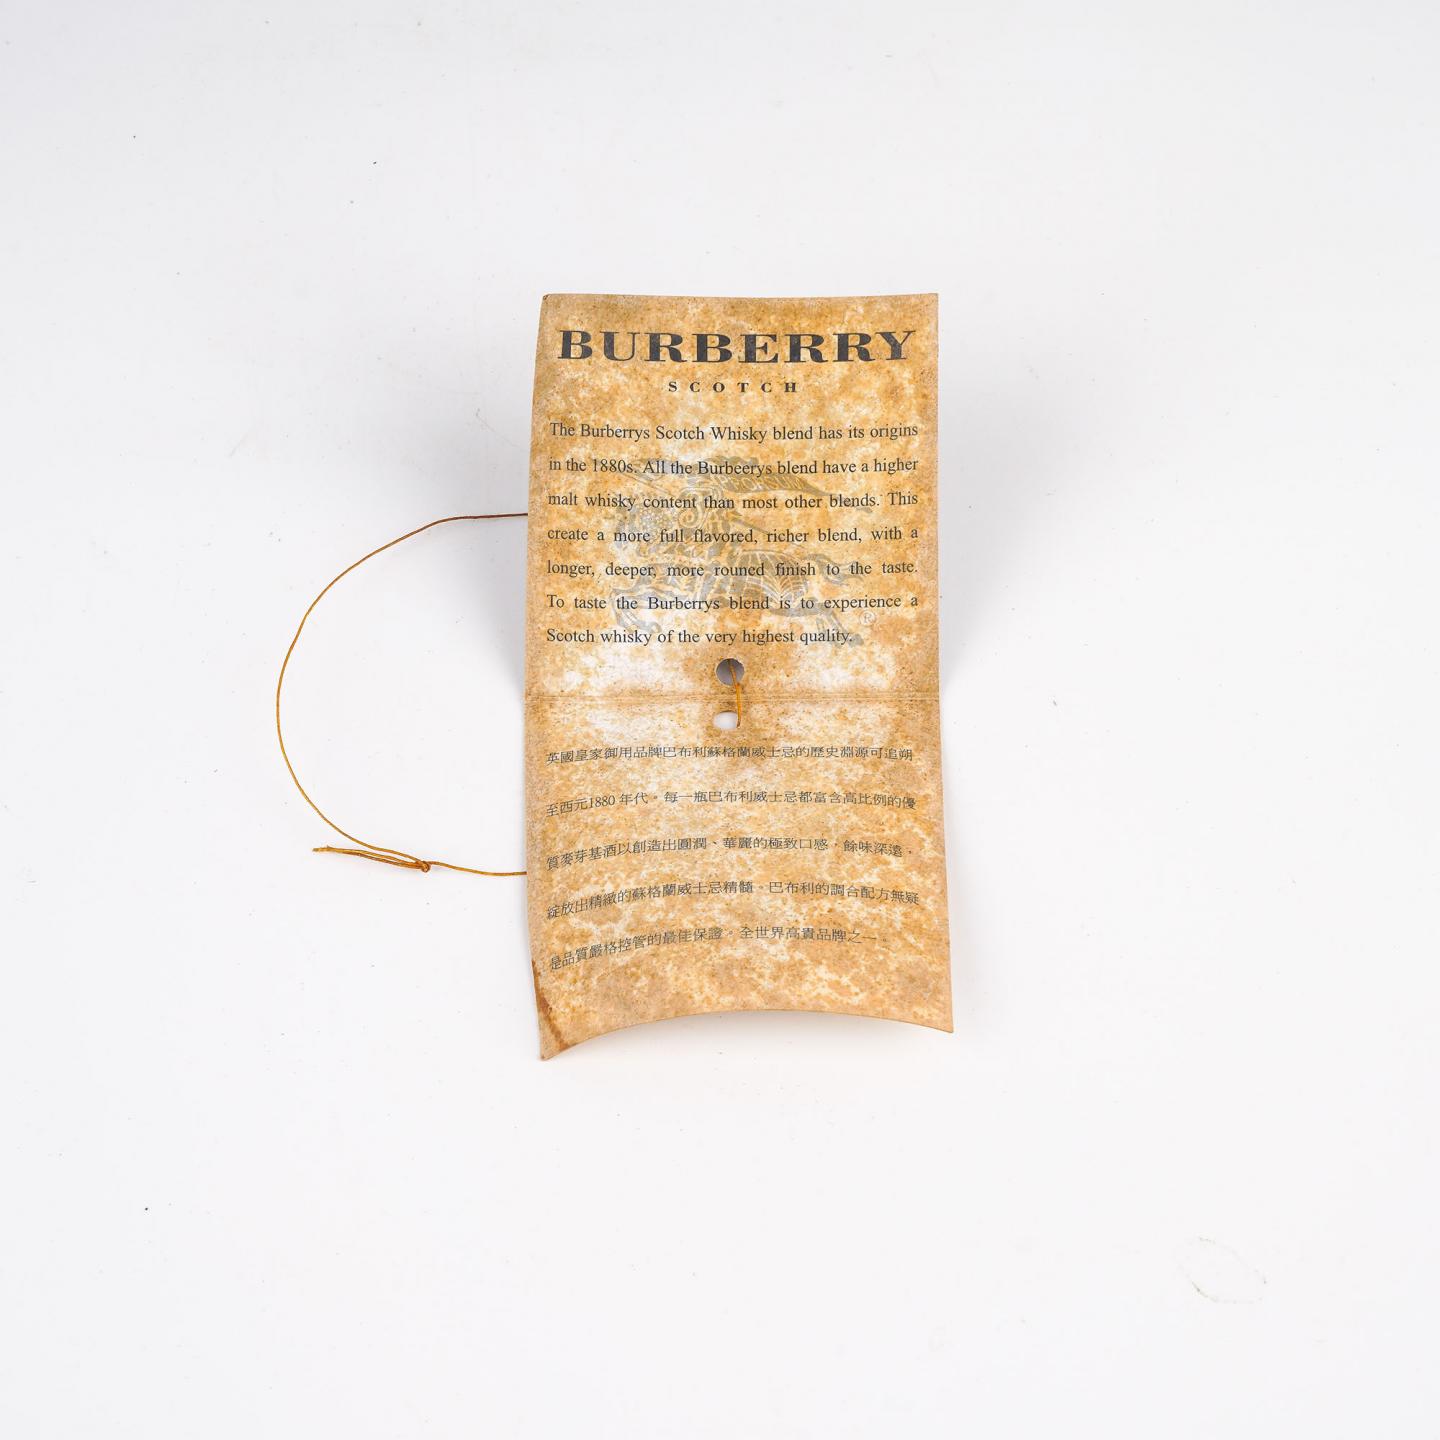 BURBERRY
SCOTCH
The Burberrys Scotch Whisky blend has its origins
in the 1880s. All the Burbeerys blend have a higher
malt whisky content than most other blends. This
create a more full flavored, richer blend, with a
longer, deeper, more rouned finish to the taste.
To taste the Burberrys blend is to experience a
Scotch whisky of the very highest quality.
®
英國皇家御用品牌巴布利蘇格蘭威士忌的歷史淵源可追朔
至西元1880 年代。每一瓶巴布利威士忌都富含高比例的優
質麥芽基酒以創造出圓潤、華麗的極致口感，餘味深遠，
綻放出精緻的蘇格蘭威士忌精髓。巴布利的調合配方無疑
是品質嚴格控管的最佳保證。全世界高貴品牌之一。